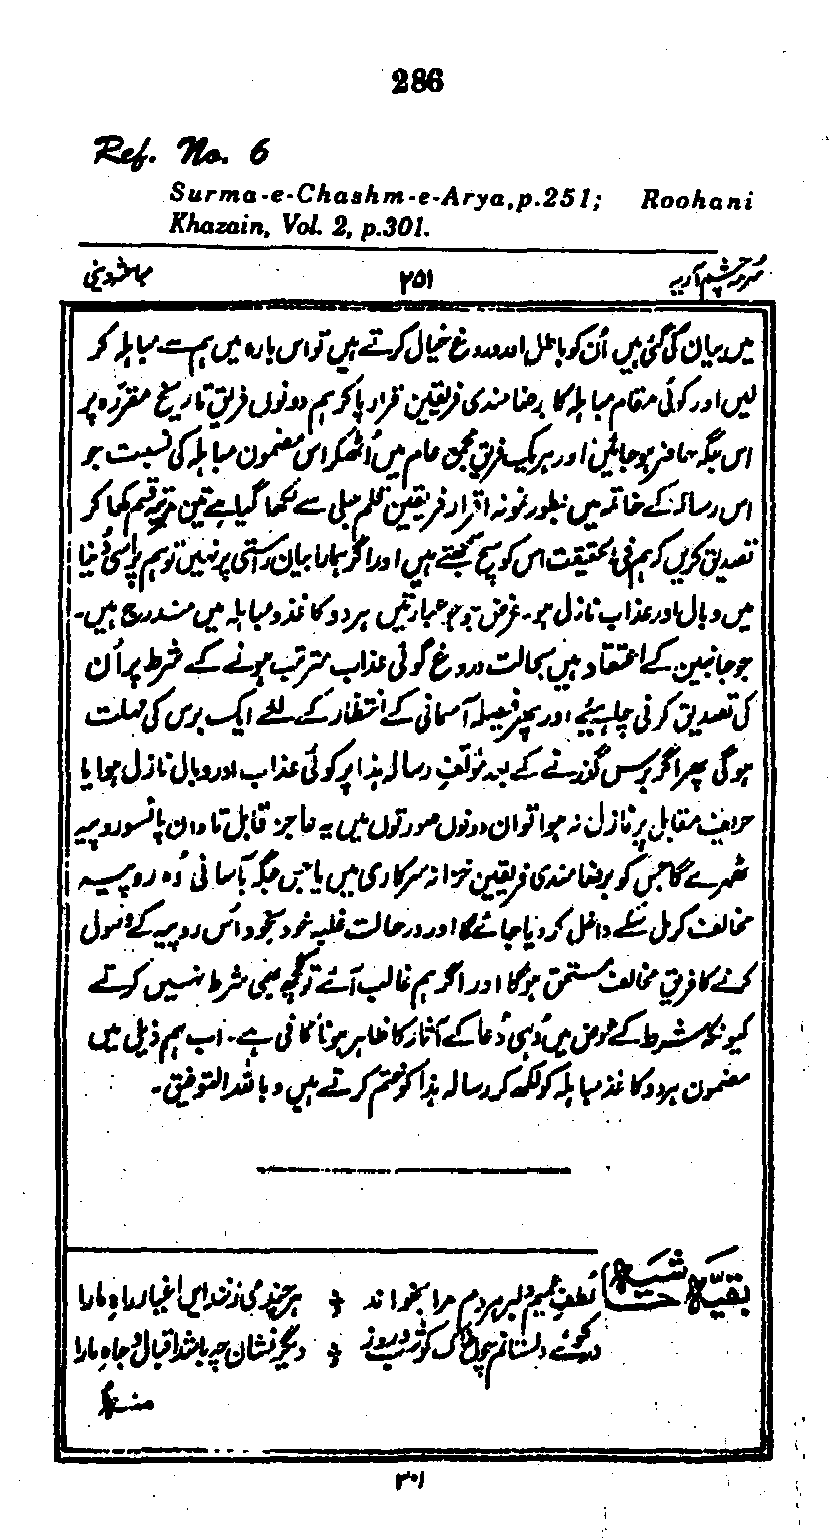 286
Ref. No. 6
Surma-e-Chashm-e-Arya,p.251; Roohani
Khazain, Vol. 2, p.301.
سرمہ چشم آریہ ۲۵۱
میں بیان کی گئی ہیں اُن کو باطل اور دروغ خیال کرتے ہیں تو اس بارہ میں ہم سے مباہلہ کر
لیں اور کوئی مقام مباہلہ کا برضامندی فریقین قرار پا کر ہم دونوں فریق تاریخ مقررہ پر
اس جگہ حاضر ہو جائیں اور ہریک فریق مجمع عام میں اُٹھکر اس مضمون مباہلہ کی نسبت جو
اس رسالہ کے خاتمہ میں بطور نمونہ اقرار فریقین قلم جلی سے لکھا گیا ہے تین مرتبہ قسم کھا کر
تصدیق کریں کہ ہم فی الحقیقت اس کو سچ سمجھتے ہیں اور اگر ہمارا بیان راستی پر نہیں تو ہم پر اسی دُنیا
میں وبال اور عذاب نازل ہو۔ غرض جو جو عبارتیں ہر دو کاغذ مباہلہ میں مندرج ہیں۔
جو جانبین کے اعتقاد ہیں بحالت دروغ گوئی عذاب مترتب ہونے کے شرط پر اُن
کی تصدیق کرنی چاہیئے اور پھر فیصلہ آسمانی کے انتظار کے لئے ایک برس کی مہلت
ہوگی پھر اگر برس گذرنے کے بعد مؤلف رسالہ ہذا پر کوئی عذاب اور وبال نازل ہوا یا
حریف مقابل پر نازل نہ ہوا تو ان دونوں صورتوں میں یہ عاجز قابل تاوان پانسو روپیہ
ٹھہرے گا جس کو برضامندی فریقین خزانہ سرکاری میں یا جس جگہ بآسانی وہ روپیہ
مخالف کو مل سکے داخل کر دیا جائے گا اور در حالت غلبہ خود بخود اُس روپیہ کے وصول
کرنے کا فریق مخالف مستحق ہوگا اور اگر ہم غالب آئے تو کچھ بھی شرط نہیں کرتے
کیونکہ شرط کے عوض میں وُہی دُعا کے آثار کا ظاہر ہونا کافی ہے۔ اب ہم ذیل میں
مضمون ہر دو کاغذ مباہلہ کو لکھ کر رسالہ ہذا کو ختم کرتے ہیں وباللہ التوفیق۔
بقیہ حاشیہ
لُطفِ عمیم دلبر ہر دم مرا بخواند ہر چند می زنند ایں اغیار راہ ما را
در کوئے دلستانم چوں خاک کو شب و روز دیگر نشاں چہ باشد اقبال و جاہ ما را
منہ
۳۰۱